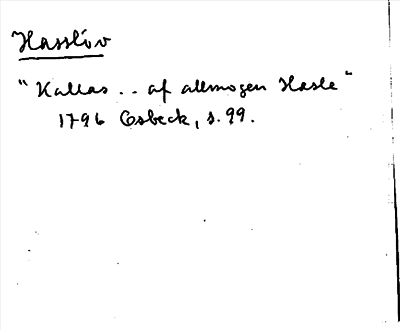 Hasslöv
"Kallas .. af allmogen Hasle"
1796 Osbeck, s. 99.